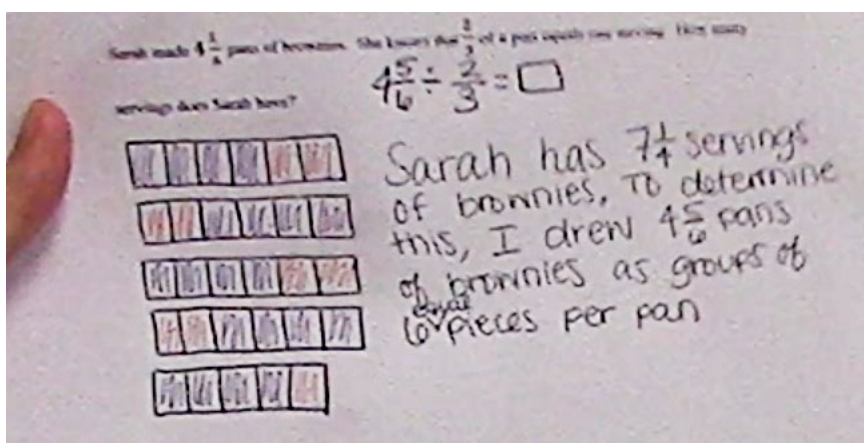 Sarah made 4 5/6 pans of brownies. She knows that 2/3 of a pan equals one serving. How many
servings does Sarah have?
4 5/6 ÷ 2/3 = □
Sarah has 7 1/4 servings
of brownies, To determine
this, I drew 4 5/6 pans
of brownies as groups of
6 equal pieces per pan